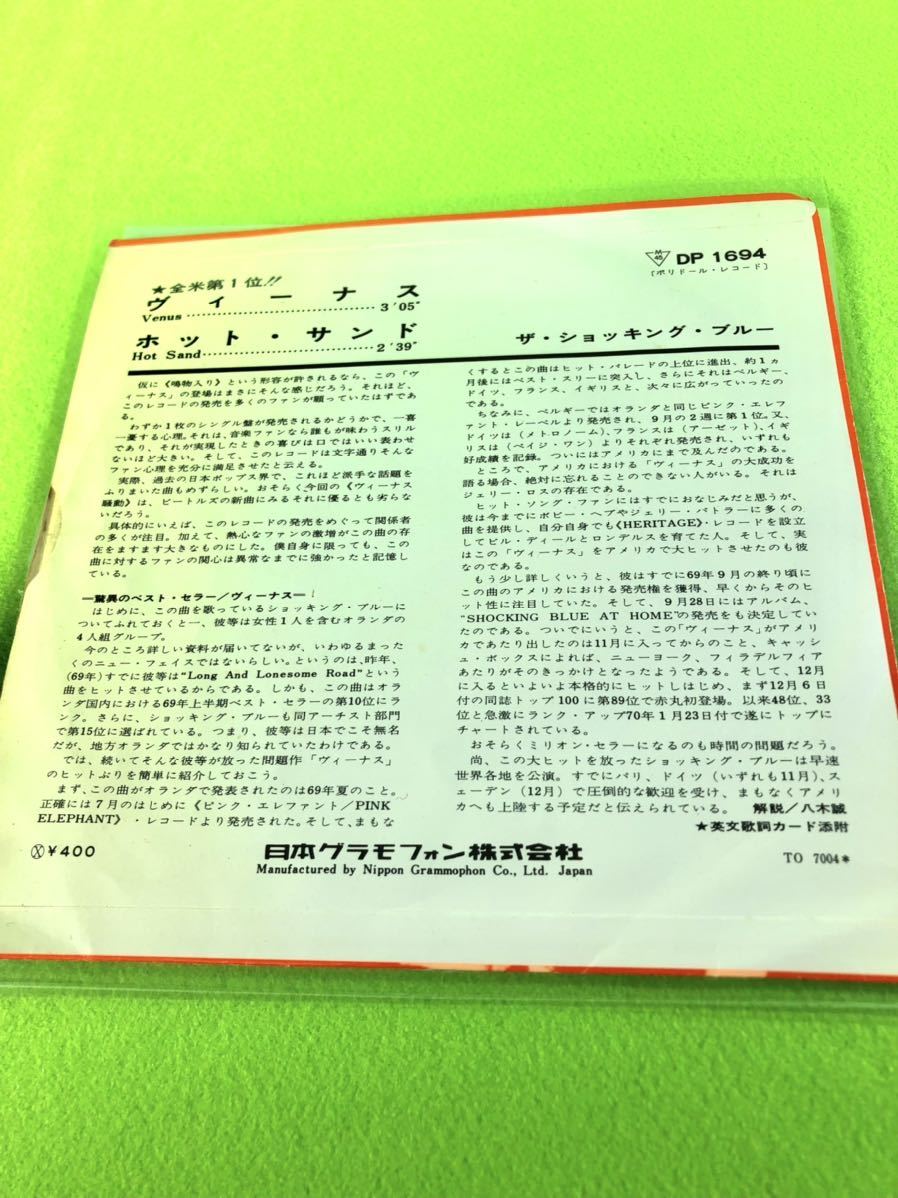 ★全米第1位!!
ヴィーナス
Venus..............................3'05"
ホット・サンド
Hot Sand...........................2'39"
M 45
DP 1694
[ポリドール・レコード]
ザ・ショッキング・ブルー
仮に《鳴物入り》という形容が許されるなら、この「ヴ
ィーナス」の登場はまさにそんな感じだろう。それほど、
このレコードの発売を多くのファンが願っていたはずであ
る。
わずか1枚のシングル盤が発売されるかどうかで、一喜
一憂する心理。それは、音楽ファンなら誰もが味わうスリル
であり、それが実現したときの喜びは口ではいい表わせ
ないほど大きい。そして、このレコードは文字通りそんな
ファン心理を充分に満足させたと云える。
実際、過去の日本ポップス界で、これほど派手な話題を
ふりまいた曲もめずらしい。おそらく今回の《ヴィーナス
騒動》は、ビートルズの新曲にみるそれに優るとも劣らな
いだろう。
具体的にいえば、このレコードの発売をめぐって関係者
の多くが注目。加えて、熱心なファンの激増がこの曲の存
在をますます大きなものにした。僕自身に限っても、この
曲に対するファンの関心は異常なまでに強かったと記憶し
ている。
―驚異のベスト・セラー／ヴィーナス―
はじめに、この曲を歌っているショッキング・ブルーに
ついてふれておくと―、彼等は女性1人を含むオランダの
4人組グループ。
今のところ詳しい資料が届いてないが、いわゆるまった
くのニュー・フェイスではないらしい。というのは、昨年、
(69年)すでに彼等は"Long And Lonesome Road"という
曲をヒットさせているからである。しかも、この曲はオラ
ンダ国内における69年上半期ベスト・セラーの第10位にラ
ンク。さらに、ショッキング・ブルーも同アーチスト部門
で第15位に選ばれている。つまり、彼等は日本でこそ無名
だが、地方オランダではかなり知られていたわけである。
では、続いてそんな彼等が放った問題作「ヴィーナス」
のヒットぶりを簡単に紹介しておこう。
まず、この曲がオランダで発表されたのは69年夏のこと。
正確には7月のはじめに《ピンク・エレファント／PINK
ELEPHANT》・レコードより発売された。そして、まもな
くするとこの曲はヒット・パレードの上位に進出、約1ヵ
月後にはベスト・スリーに突入し、さらにそれはベルギー、
ドイツ、フランス、イギリスと、次々に広がっていったの
である。
ちなみに、ベルギーではオランダと同じピンク・エレフ
ァント・レーベルより発売され、9月の2週に第1位。又、
ドイツは(メトロノーム)、フランスは(アーゼット)、イギ
リスは(ペイジ・ワン)よりそれぞれ発売され、いずれも
好成績を記録。ついにはアメリカにまで及んだのである。
ところで、アメリカにおける「ヴィーナス」の大成功を
語る場合、絶対に忘れることのできない人がいる。それは
ジェリー・ロスの存在である。
ヒット・ソング・ファンにはすでにおなじみだと思うが、
彼は今までにボビー・ヘブやジェリー・バトラーに多くの
曲を提供し、自分自身でも《HERITAGE》・レコードを設立
してビル・ディールとロンデルスを育てた人。そして、実
はこの「ヴィーナス」をアメリカで大ヒットさせたのも彼
なのである。
もう少し詳しくいうと、彼はすでに69年9月の終り頃に
この曲のアメリカにおける発売権を獲得、早くからそのヒ
ット性に注目していた。そして、9月28日にはアルバム、
"SHOCKING BLUE AT HOME"の発売をも決定してい
たのである。ついでにいうと、この「ヴィーナス」がアメリ
カであたり出したのは11月に入ってからのこと、キャッシ
ュ・ボックスによれば、ニューヨーク、フィラデルフィア
あたりがそのきっかけとなったようである。そして、12月
に入るといよいよ本格的にヒットしはじめ、まず12月6日
付の同誌トップ100に第89位で赤丸初登場。以来48位、33
位と急激にランク・アップ70年1月23日付で遂にトップに
チャートされている。
おそらくミリオン・セラーになるのも時間の問題だろう。
尚、この大ヒットを放ったショッキング・ブルーは早速
世界各地を公演。すでにパリ、ドイツ(いずれも11月)、ス
ェーデン(12月)で圧倒的な歓迎を受け、まもなくアメリ
カへも上陸する予定だと伝えられている。 解説／八木誠
★英文歌詞カード添附
Ⓧ￥400
日本グラモフォン株式会社
Manufactured by Nippon Grammophon Co., Ltd. Japan
TO 7004*